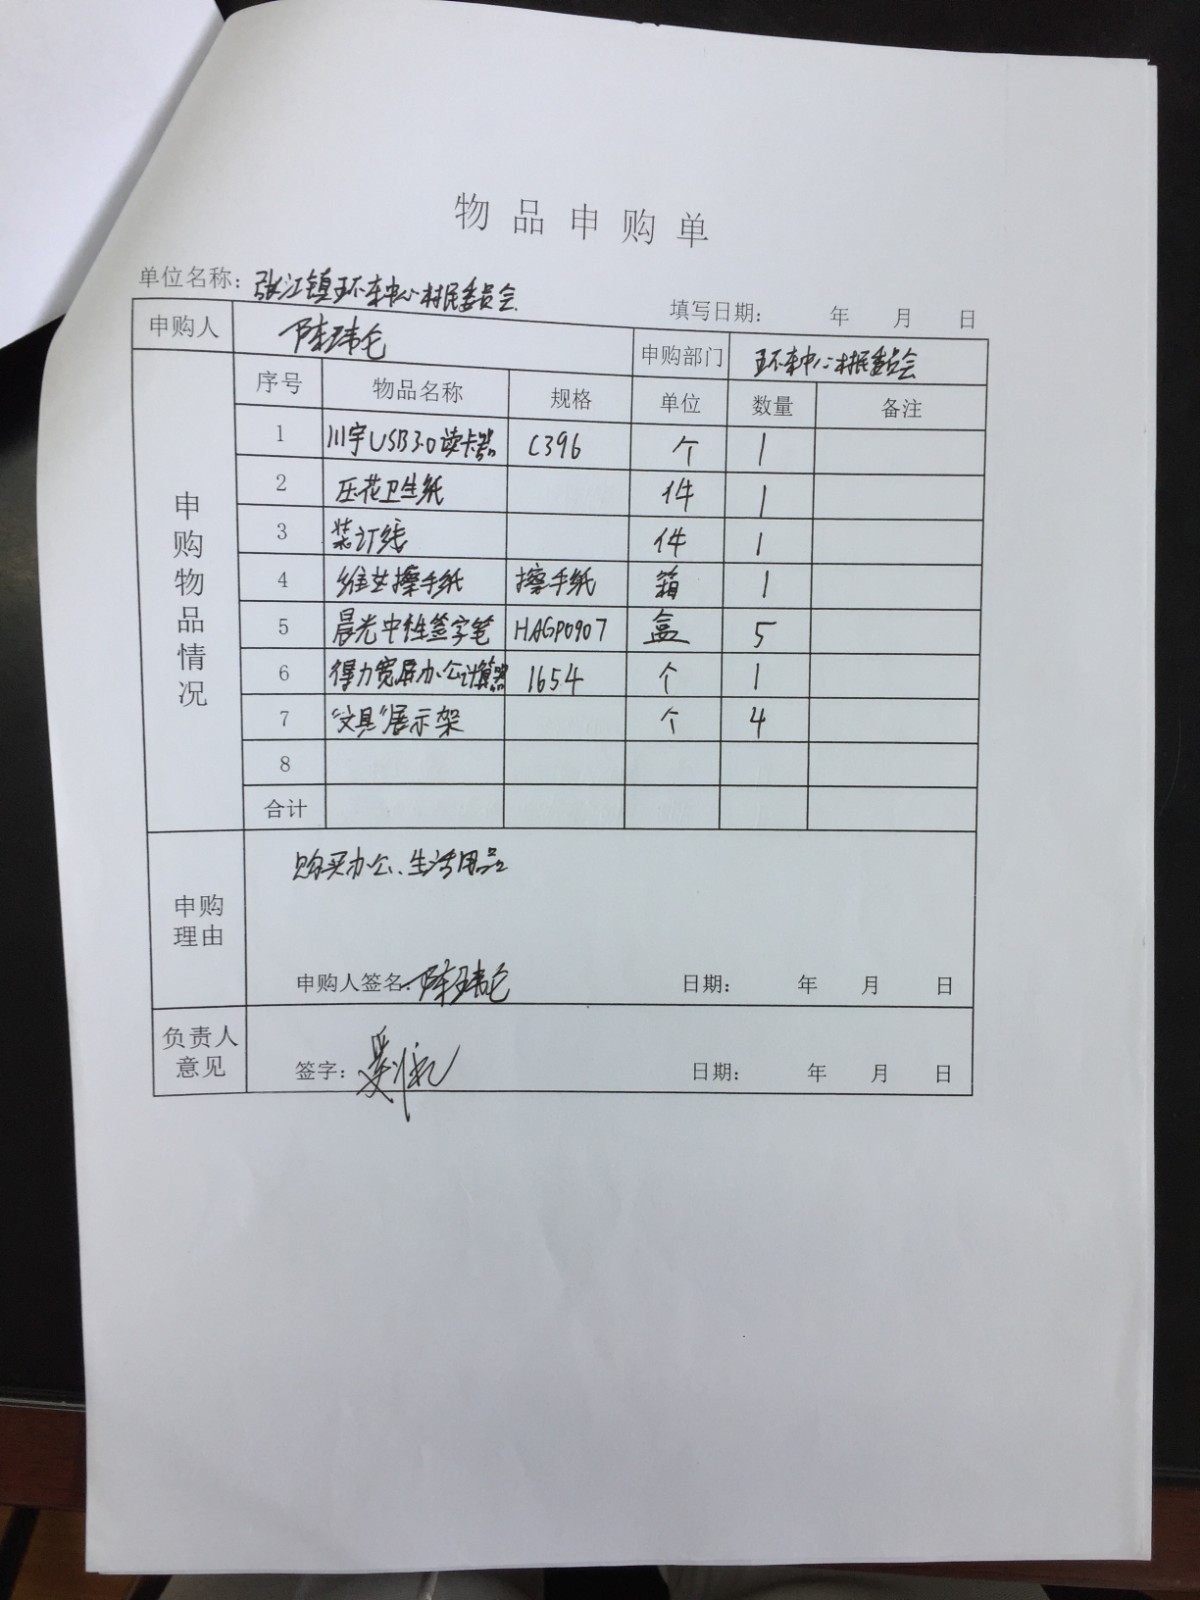 物品申购单
单位名称：张江镇环东中心村民委员会
填写日期： 年 月 日
申购人 陈玮仑 申购部门 环东中心村民委员会
申购物品情况
序号 物品名称 规格 单位 数量 备注
1 川宇USB3.0读卡器 C396 个 1
2 压花卫生纸 件 1
3 装订线 件 1
4 维达擦手纸 擦手纸 箱 1
5 晨光中性签字笔 HAGP0907 盒 5
6 得力宽屏办公计算器 1654 个 1
7 “文具”展示架 个 4
8
合计
申购理由
购买办公、生活用品
申购人签名：陈玮仑 日期： 年 月 日
负责人意见
签字： 日期： 年 月 日